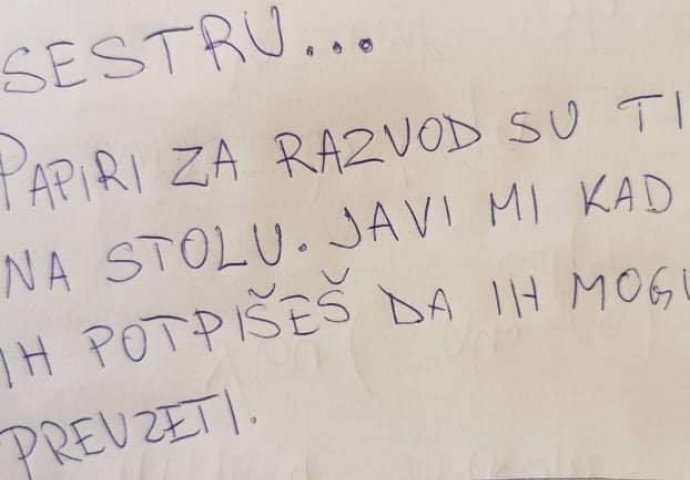 SESTRU...
PAPIRI ZA RAZVOD SU TI
NA STOLU. JAVI MI KAD
IH POTPIŠEŠ DA IH MOGU
PREUZETI.